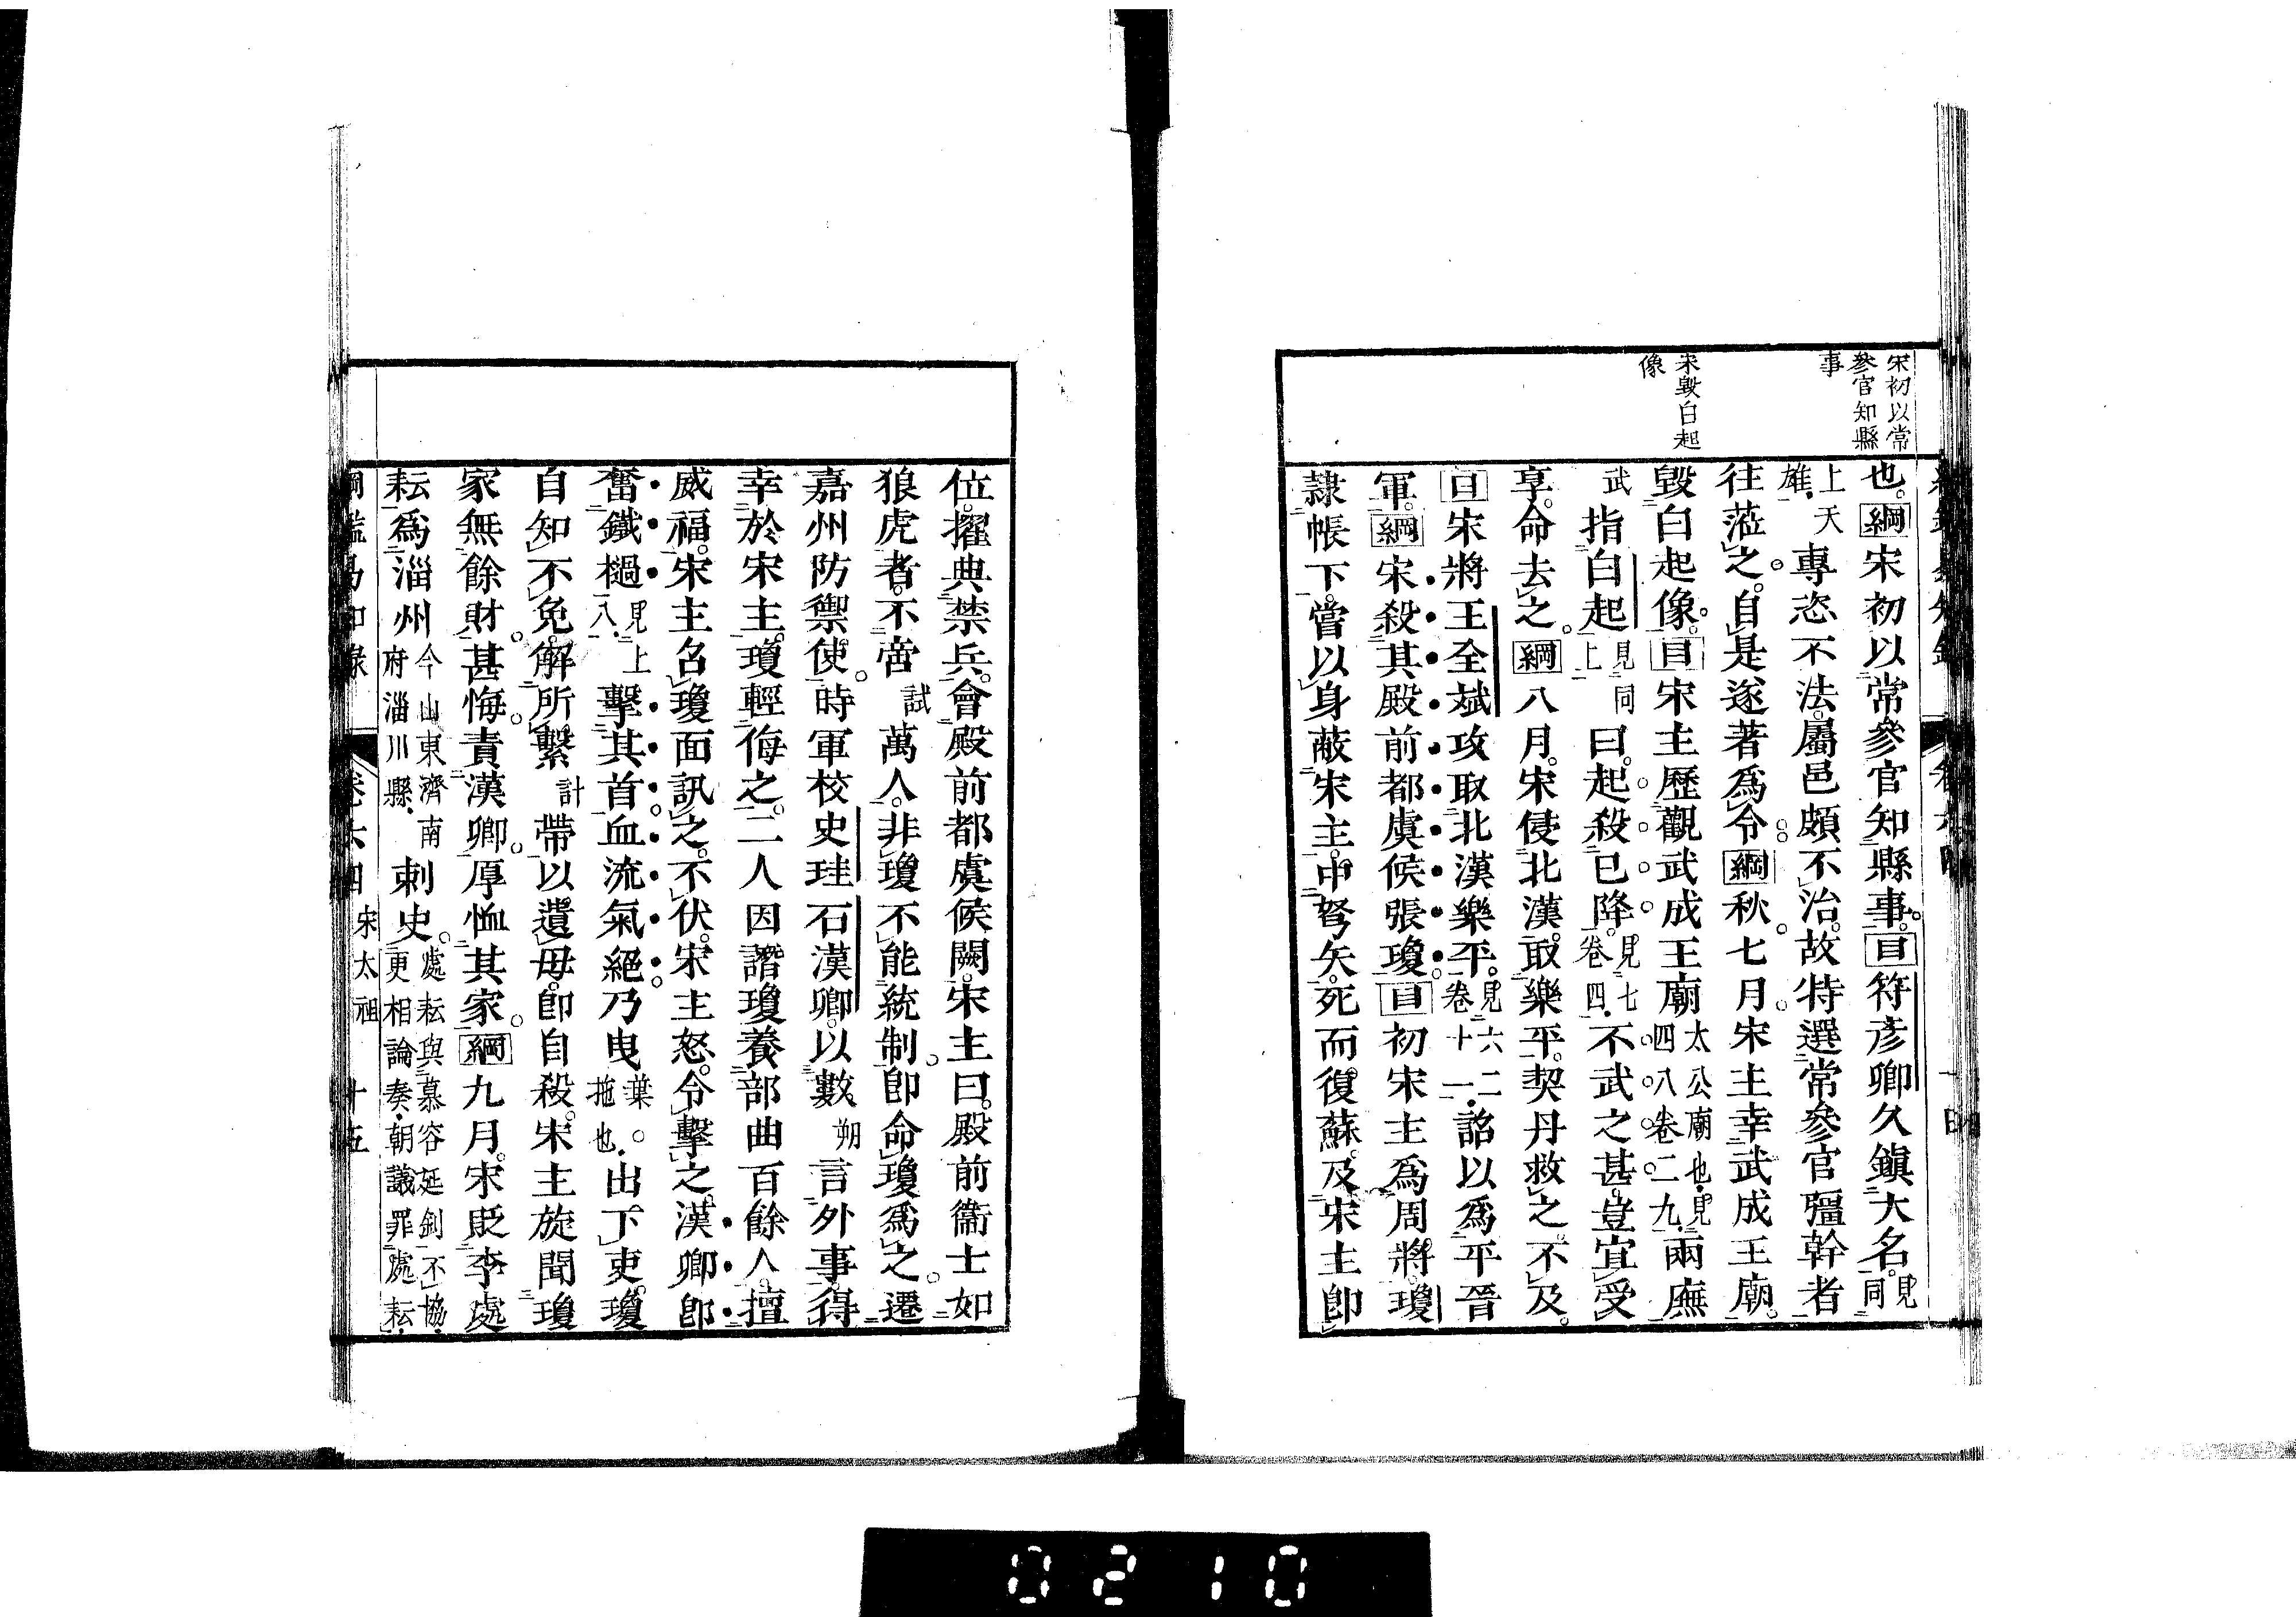 宋初以常
參官知縣
事
宋毀白起
像
也。綱宋初以常參官知縣事。目符彥卿久鎮大名。見同
上天雄。專恣不法。屬邑頗不治。故特選常參官彊幹者
往蒞之。自是遂著爲令。綱秋七月。宋主幸武成王廟。
毀白起像。目宋主歷觀武成王廟太公廟也。見四八卷二九。兩廡
武指白起見同上曰。起殺已降。見七卷四。不武之甚。豈宜受
享。命去之。綱八月。宋侵北漢。取樂平。契丹救之。不及。
目宋將王全斌攻取北漢樂平。見六二卷十一。詔以爲平晉
軍。綱宋殺其殿前都虞候張瓊。目初宋主爲周將。瓊
隸帳下。嘗以身蔽宋主。中弩矢。死而復蘇。及宋主卽
位。擢典禁兵。會殿前都虞候闕。宋主曰。殿前衞士如
狼虎者。不啻試萬人。非瓊不能統制。卽命瓊爲之。遷
嘉州防禦使。時軍校史珪石漢卿。以數朔言外事。得
幸於宋主。瓊輕侮之。二人因譖瓊養部曲百餘人。擅
威福。宋主召瓊面訊之。不伏。宋主怒。令擊之。漢卿卽
奮鐵檛見上八。擊其首。血流氣絕。乃曳葉。拖也。出下吏。瓊
自知不免。解所繫計帶以遺母。卽自殺。宋主旋聞瓊
家無餘財。甚悔。責漢卿。厚恤其家。綱九月。宋貶李處
耘爲淄州今山東濟南府淄川縣。刺史。處耘與慕容延釗不協。更相論奏。朝議罪處耘。
綱鑑易知錄 卷六四 宋太祖 十五